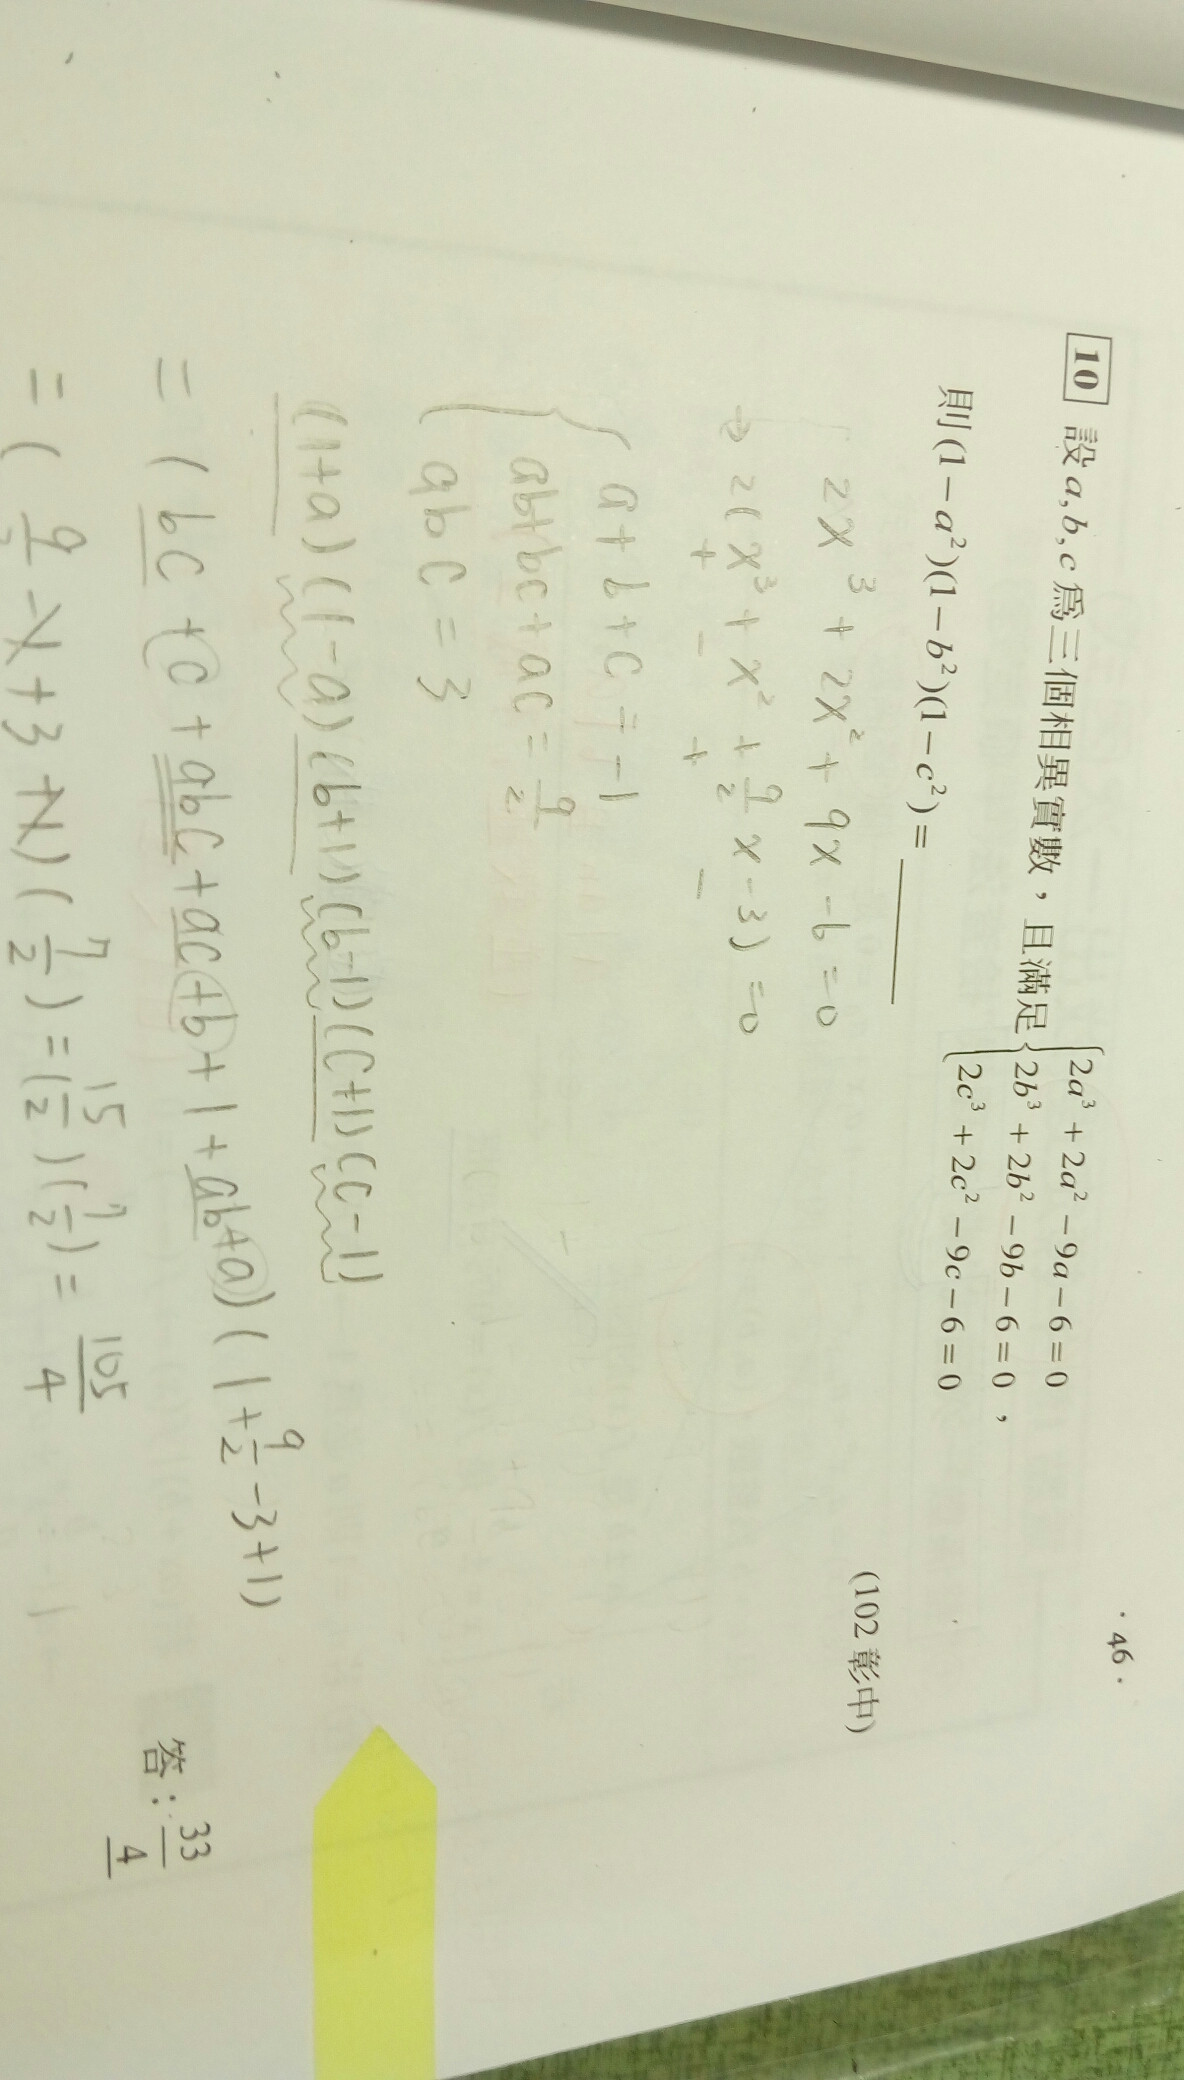 · 46 ·
10 設 a, b, c 為三個相異實數，且滿足 { 2a³ + 2a² − 9a − 6 = 0
2b³ + 2b² − 9b − 6 = 0 ，
2c³ + 2c² − 9c − 6 = 0
則 (1 − a²)(1 − b²)(1 − c²) = ______
(102 彰中)
2x³ + 2x² + 9x − 6 = 0
⇒ 2(x³ + x² + 9/2 x − 3) = 0
+ − + −
{ a + b + c = −1
ab + bc + ac = 9/2
abc = 3
(1+a)(1−a)(b+1)(b−1)(c+1)(c−1)
= (bc + c + abc + ac + b + 1 + ab + a)(1 + 9/2 − 3 + 1)
= (9/2 − 1 + 3 + 1)(7/2) = (15/2)(7/2) = 105/4
答： 33/4